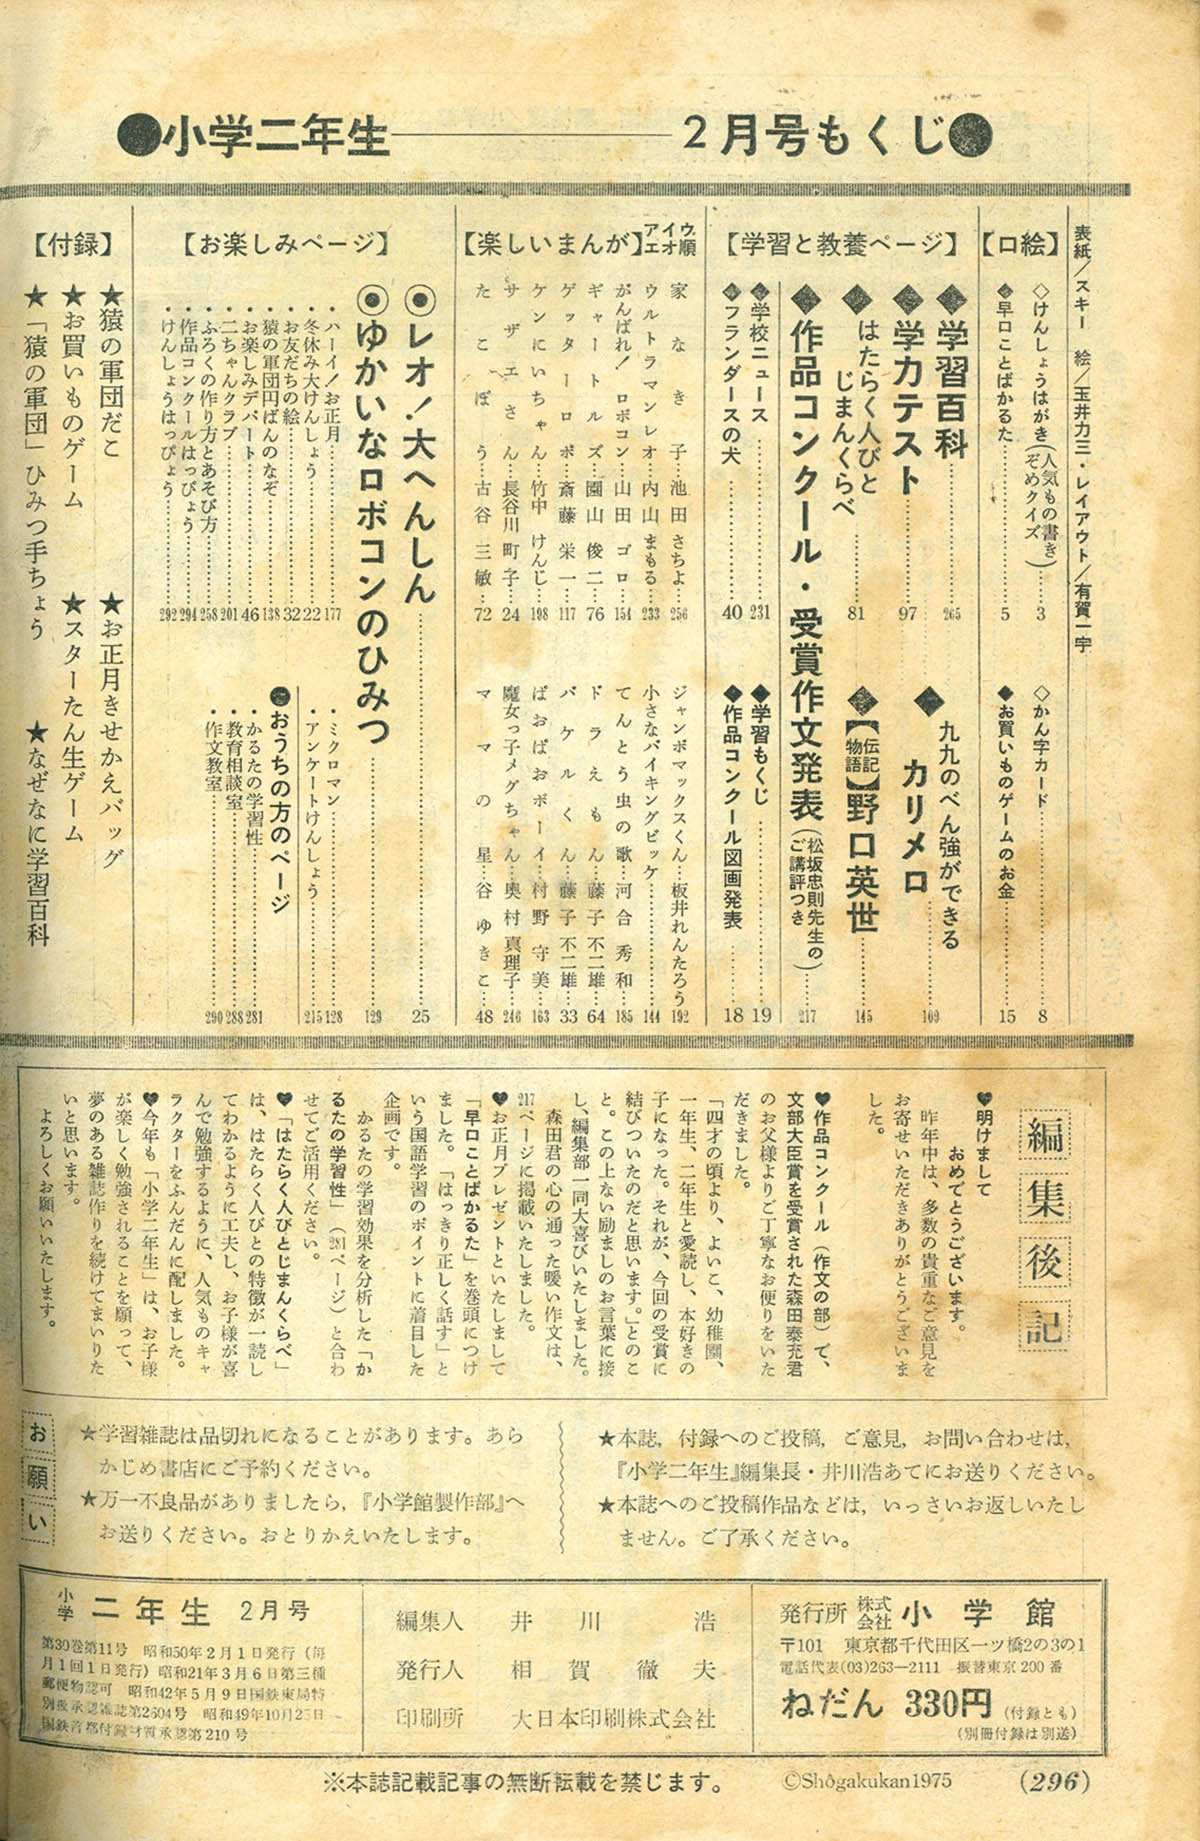 ●小学二年生―――2月号もくじ●
表紙／スキー　絵／玉井力三・レイアウト／有賀一宇
【口絵】
◇けんしょうはがき(人気もの書きぞめクイズ)……3
◇かん字カード……8
◆早口ことばかるた……5
◆お買いものゲームのお金……15
【学習と教養ページ】
◆学習百科……265
◆学力テスト……97
九九のべん強ができる
◆カリメロ……109
◆はたらく人びとじまんくらべ……81
◆【伝記物語】野口英世……145
◆作品コンクール・受賞作文発表(松坂忠則先生のご講評つき)……217
◆学校ニュース……231
◆学習もくじ……19
◆フランダースの犬……40
◆作品コンクール図画発表……18
【楽しいまんが】アイウエオ順
家なき子…池田さちよ…256
ウルトラマンレオ…内山まもる…233
がんばれ！ロボコン…山田ゴロ…154
ギャートルズ…園山俊二…76
ゲッターロボ…斎藤栄一…117
ケンにいちゃん…竹中けんじ…198
サザエさん…長谷川町子…24
たこぼう…古谷三敏…72
ジャンボマックスくん…板井れんたろう…192
小さなバイキングビッケ……144
てんとう虫の歌…河合秀和…185
ドラえもん…藤子不二雄…64
バケルくん…藤子不二雄…33
ぱおぱおボーイ…村野守美…163
魔女っ子メグちゃん…奥村真理子…246
ママの星…谷ゆきこ…48
【お楽しみページ】
◉レオ！大へんしん……25
◉ゆかいなロボコンのひみつ……129
・ハーイ！お正月……177
・冬休み大けんしょう……22
・お友だちの絵……32
・猿の軍団円ばんのなぞ……138
・お楽しみデパート……46
・二ちゃんクラブ……201
・ふろくの作り方とあそび方……258
・作品コンクールはっぴょう……294
・けんしょうはっぴょう……292
・ミクロマン……128
・アンケートけんしょう……215
●おうちの方のページ
・かるたの学習性……281
・教育相談室……288
・作文教室……290
【付録】
★猿の軍団だこ
★お正月きせかえバッグ
★お買いものゲーム
★スターたん生ゲーム
★「猿の軍団」ひみつ手ちょう
★なぜなに学習百科
編集後記
♥明けまして
おめでとうございます。
昨年中は、多数の貴重なご意見を
お寄せいただきありがとうございま
した。
♥作品コンクール（作文の部）で、
文部大臣賞を受賞された森田泰充君
のお父様よりご丁寧なお便りをいた
だきました。
「四才の頃より、よいこ、幼稚園、
一年生、二年生と愛読し、本好きの
子になった。それが、今回の受賞に
結びついたのだと思います。」とのこ
と。この上ない励ましのお言葉に接
し、編集部一同大喜びいたしました。
森田君の心の通った暖い作文は、
217ページに掲載いたしました。
♥お正月プレゼントといたしまして
「早口ことばかるた」を巻頭につけ
ました。「はっきり正しく話す」と
いう国語学習のポイントに着目した
企画です。
かるたの学習効果を分析した「か
るたの学習性」（281ページ）と合わ
せてご活用ください。
♥「はたらく人びとじまんくらべ」
は、はたらく人びとの特徴が一読し
てわかるように工夫し、お子様が喜
んで勉強するように、人気ものキャ
ラクターをふんだんに配しました。
♥今年も「小学二年生」は、お子様
が楽しく勉強されることを願って、
夢のある雑誌作りを続けてまいりた
いと思います。
よろしくお願いいたします。
お願い
★学習雑誌は品切れになることがあります。あら
かじめ書店にご予約ください。
★万一不良品がありましたら,『小学館製作部』へ
お送りください。おとりかえいたします。
★本誌，付録へのご投稿，ご意見，お問い合わせは,
『小学二年生』編集長・井川浩あてにお送りください。
★本誌へのご投稿作品などは，いっさいお返しいたし
ません。ご了承ください。
小学二年生 2月号
第30巻第11号　昭和50年2月1日発行（毎
月1回1日発行）昭和21年3月6日第三種
郵便物認可　昭和42年5月9日国鉄東局特
別扱承認雑誌第2604号　昭和49年10月23日
国鉄首都付録材質承認第210号
編集人　井川　浩
発行人　相賀徹夫
印刷所　大日本印刷株式会社
発行所 株式会社 小学館
〒101　東京都千代田区一ツ橋2の3の1
電話代表(03)263―2111　振替東京200番
ねだん 330円（付録とも）
（別冊付録は別送）
※本誌記載記事の無断転載を禁じます。
©Shôgakukan1975
(296)